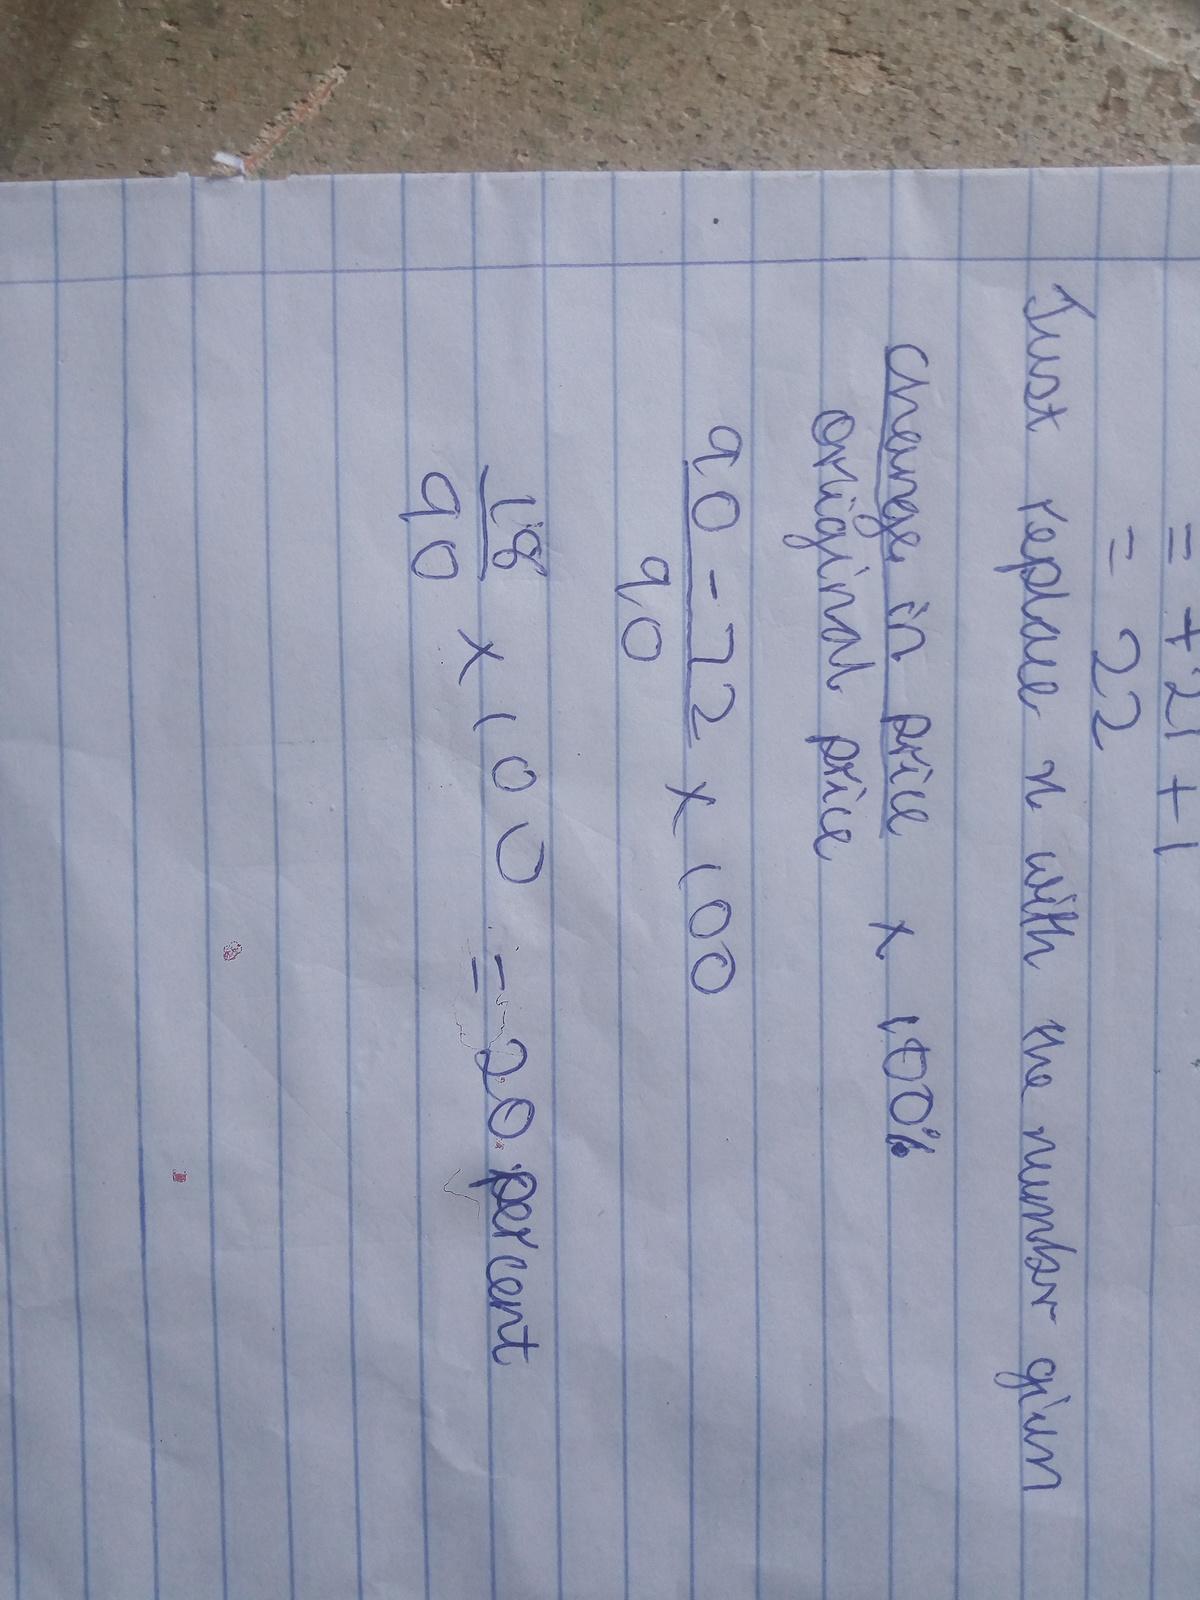 = +21 +1
= 22
Just replace n with the number given
Change in price × 100%
original price
90 - 72 × 100
90
18 × 100 = 20 percent
90